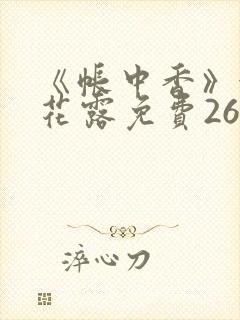 《帐中香》
花露免費26
淬心刀